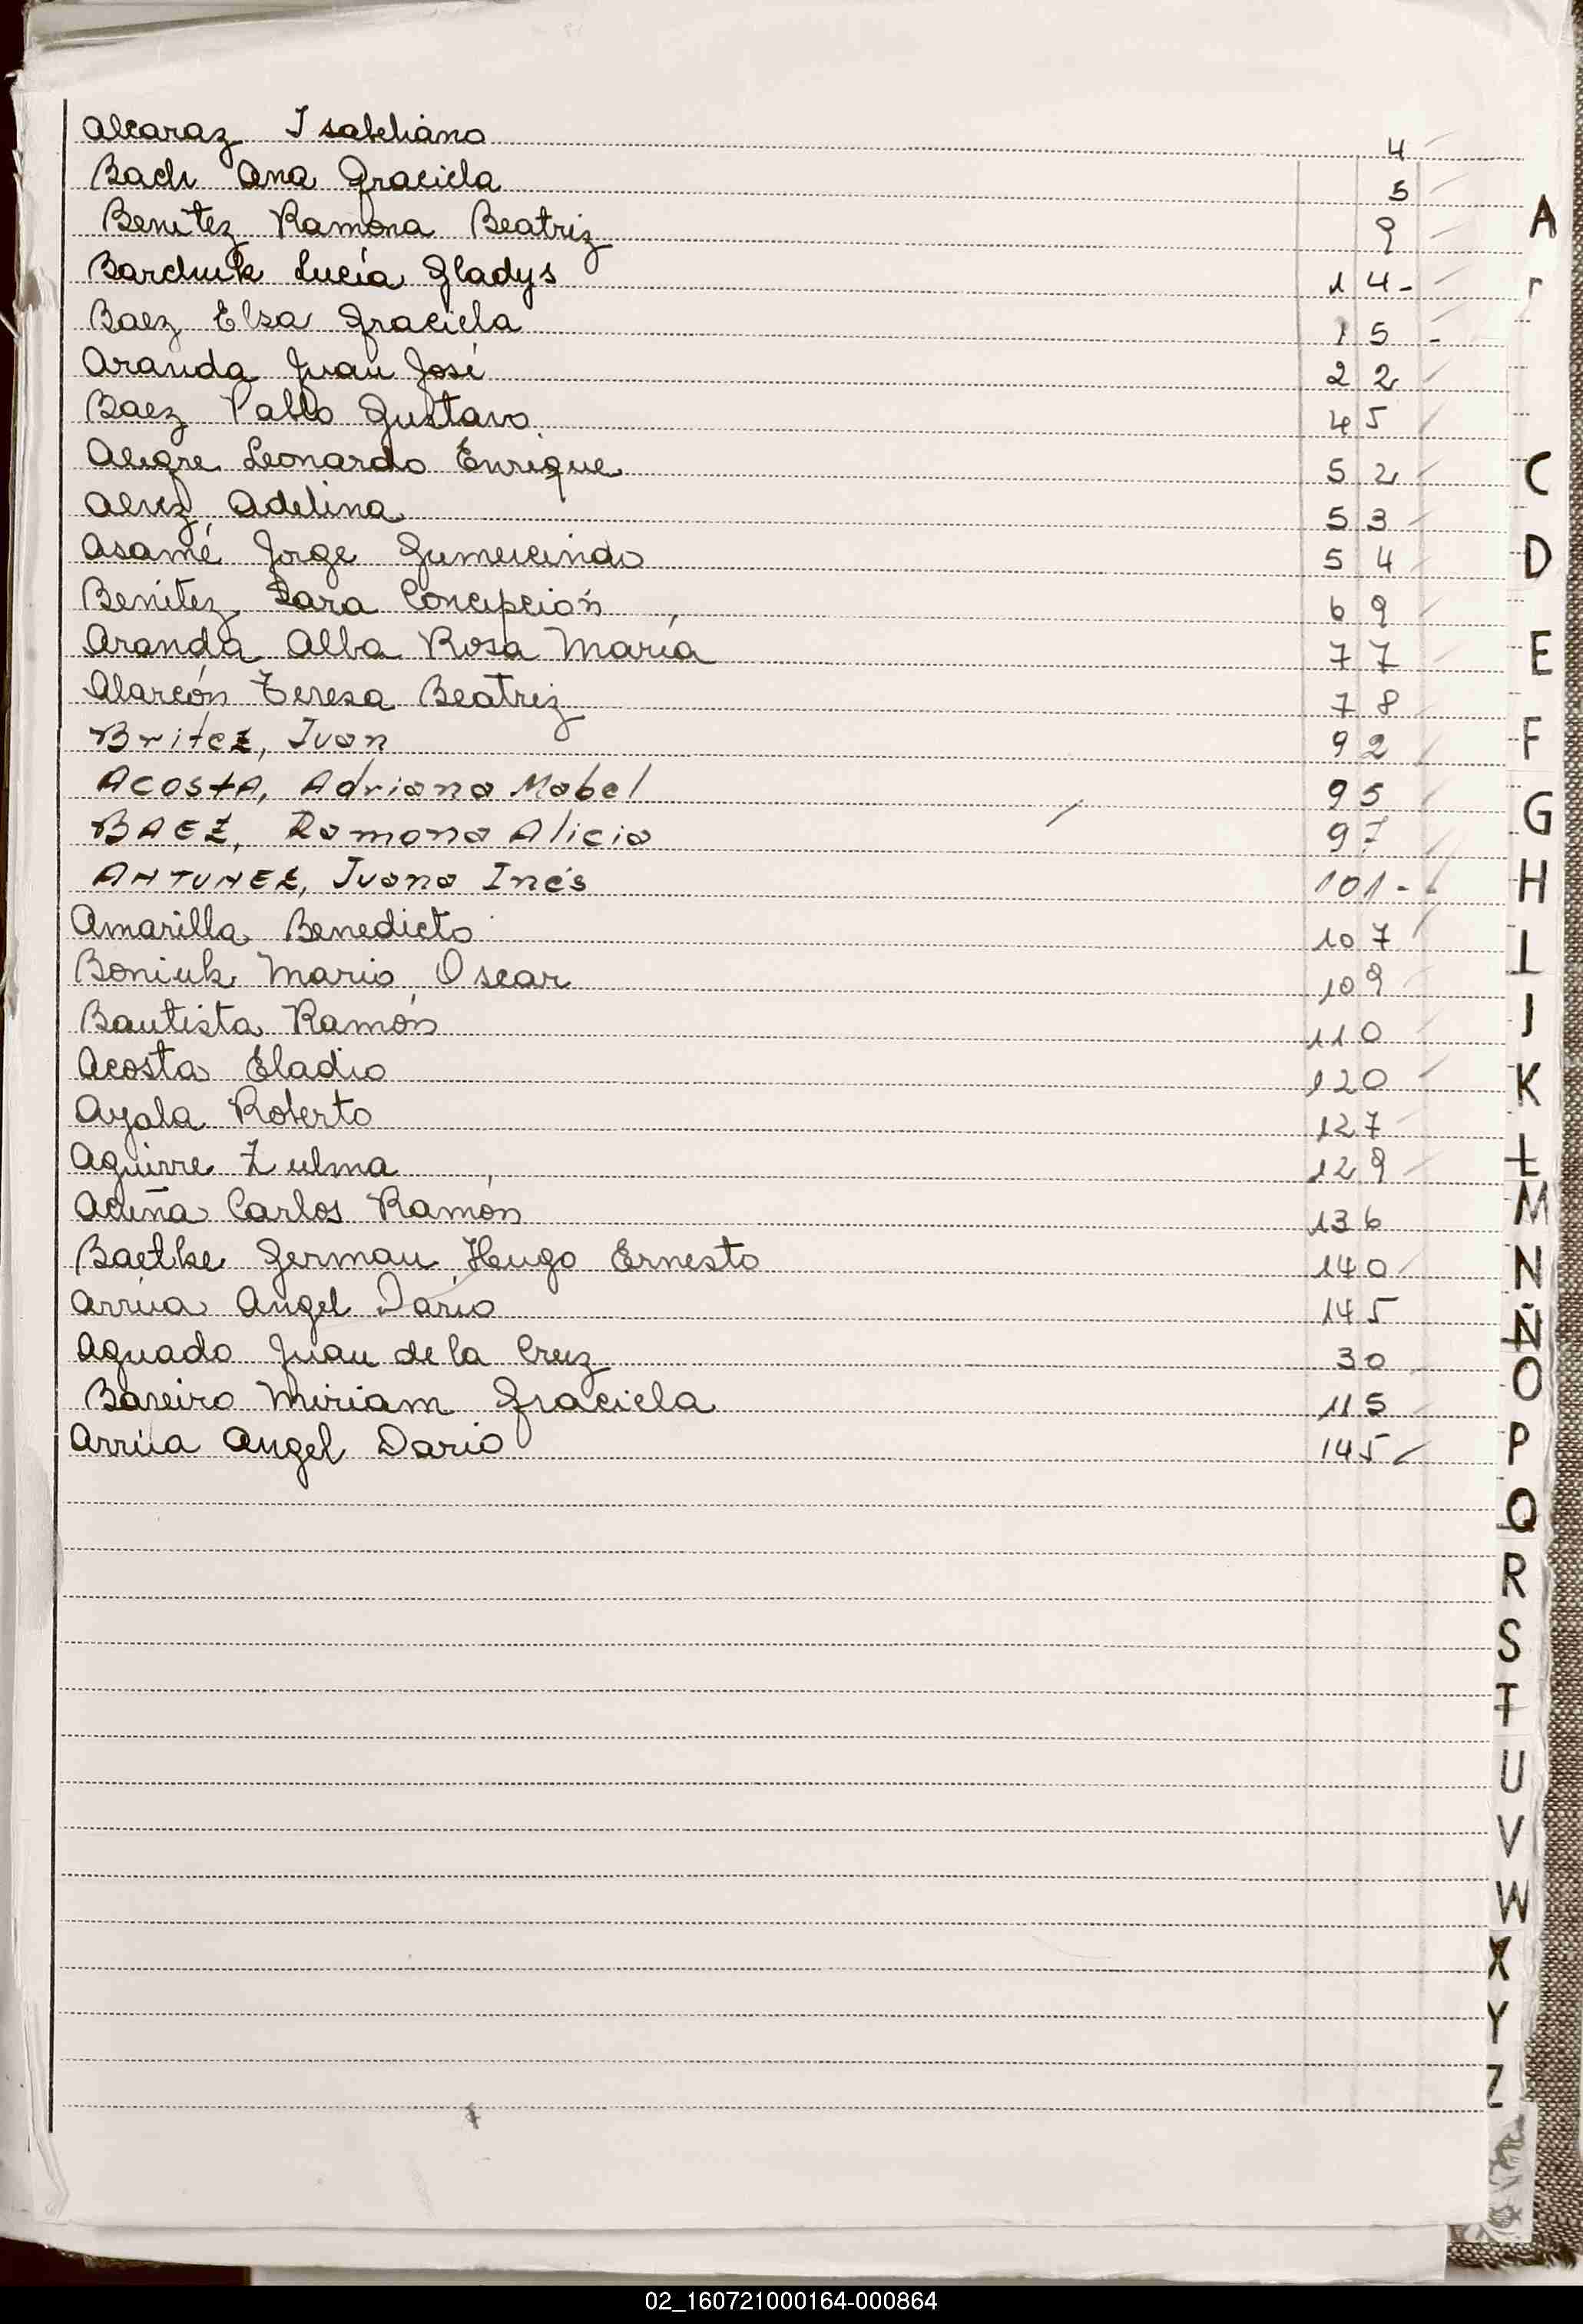 Alcaraz Isabeliano 4
Bach Ana Graciela 5
Benitez Ramona Beatriz 9
Barchuk Lucía Gladys 14-
Baez Elsa Graciela 15 -
Aranda Juan José 22
Baez Pablo Gustavo 45
Alegre Leonardo Enrique 52
Alvez Adelina 53
Asamé Jorge Gumercindo 54
Benítez Sara Concepción 69
Aranda Alba Rosa María 77
Alarcón Teresa Beatriz 78
Britez, Ivan 92
ACOSTA, Adriana Mabel 95
BAEZ, Ramona Alicia 97
ANTUNEZ, Ivana Inés 101-
Amarilla Benedicto 107
Boniuk Mario Oscar 109
Bautista Ramón 110
Acosta Eladio 120
Ayala Roberto 127
Aguirre Zulma 129
Acuña Carlos Ramón 136
Baetke German Hugo Ernesto 140
Arrúa Angel Dario 145
Aguado Juan de la Cruz 30
Bareiro Miriam Graciela 115
Arrúa Angel Dario 145
A
C
D
E
F
G
H
I
J
K
L
M
N
Ñ
O
P
Q
R
S
T
U
V
W
X
Y
Z
02_160721000164-000864